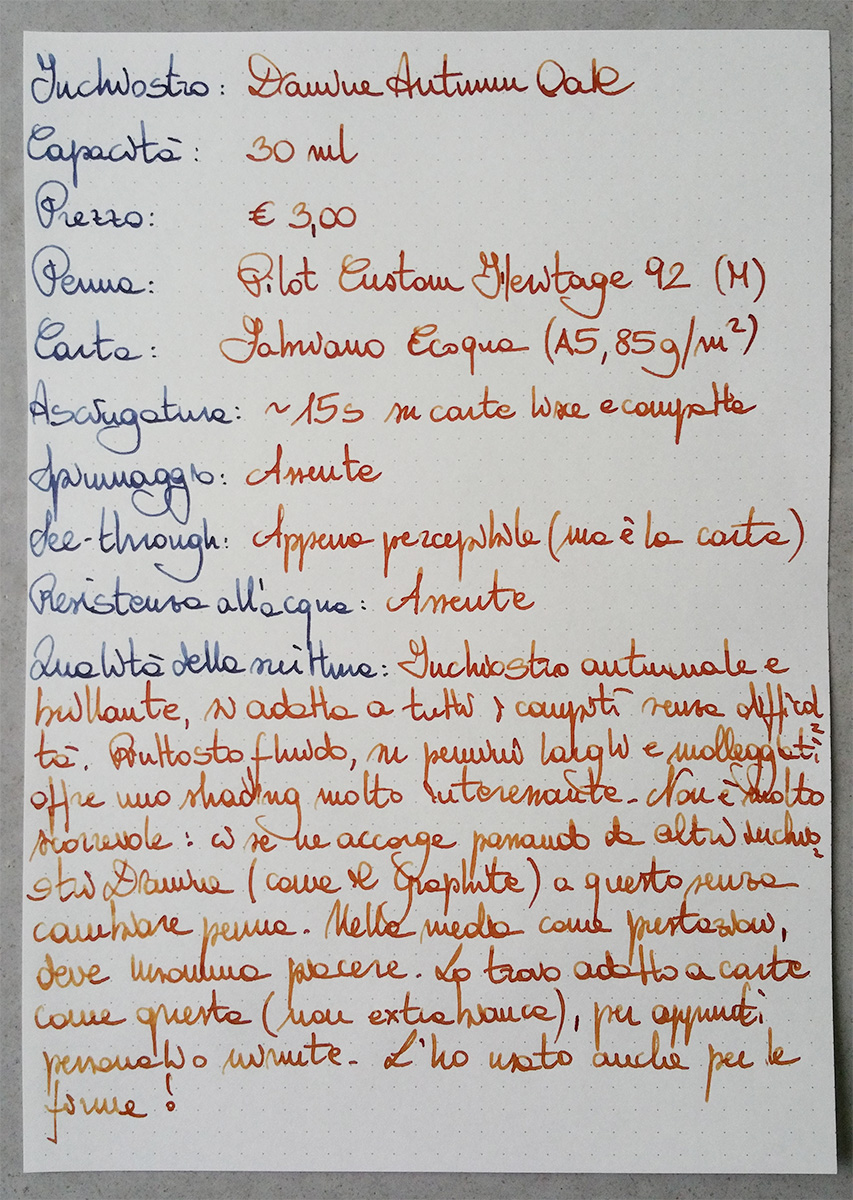 Inchiostro: Diamine Autumn Oak
Capacità: 30 ml
Prezzo: € 3,00
Penna: Pilot Custom Heritage 92 (M)
Carta: Fabriano Ecoqua (A5, 85g/m²)
Asciugatura: ~15s su carte lisce e compatte
Spiumaggio: Assente
See-through: Appena percepibile (ma è la carta)
Resistenza all'acqua: Assente
Qualità della scrittura: Inchiostro autunnale e
brillante, si adatta a tutti i compiti senza difficol
tà. Piuttosto fluido, su pennini larghi e molleggiati
offre uno shading molto interessante. Non è molto
scorrevole: ci se ne accorge passando da altri inchio
stri Diamine (come il Graphite) a questo senza
cambiare penna. Nella media come prestazioni,
deve insomma piacere. Lo trovo adatto a carte
come questa (non extra bianca), per appunti
personali o minute. L'ho usato anche per le
firme!